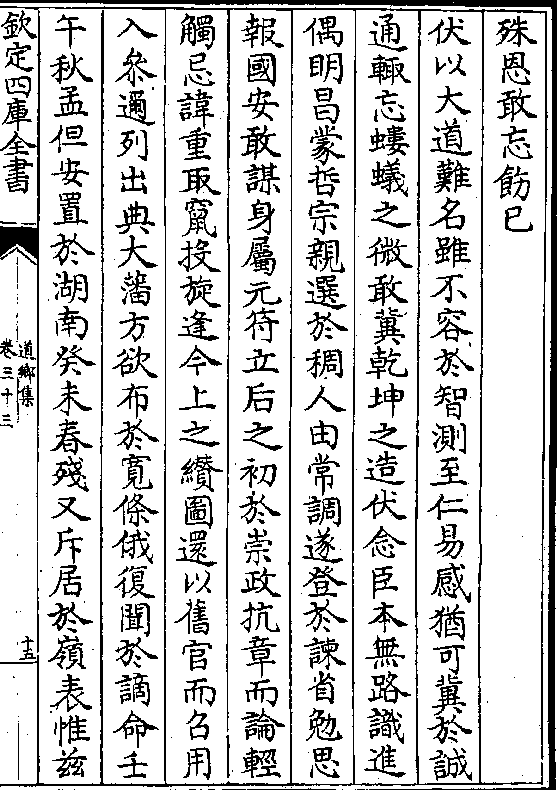 殊恩敢忘飭已
伏以大道難名雖不容於智測至仁易感猶可冀於誠
通輙忘螻蟻之微敢冀乾坤之造伏念臣本無路識進
偶明昌蒙哲宗親選於稠人由常調遂登於諫省勉思
報國安敢謀身屬元符立后之初於崇政抗章而論輕
觸忌諱重取竄投旋逢今上之纉圖還以舊官而召用
入叅邇列出典大藩方欲布於寛條俄復聞於謫命壬
午秋孟但安置於湖南癸未春殘又斥居於嶺表惟兹
欽定四庫全書
道鄉集
卷三十三
十五